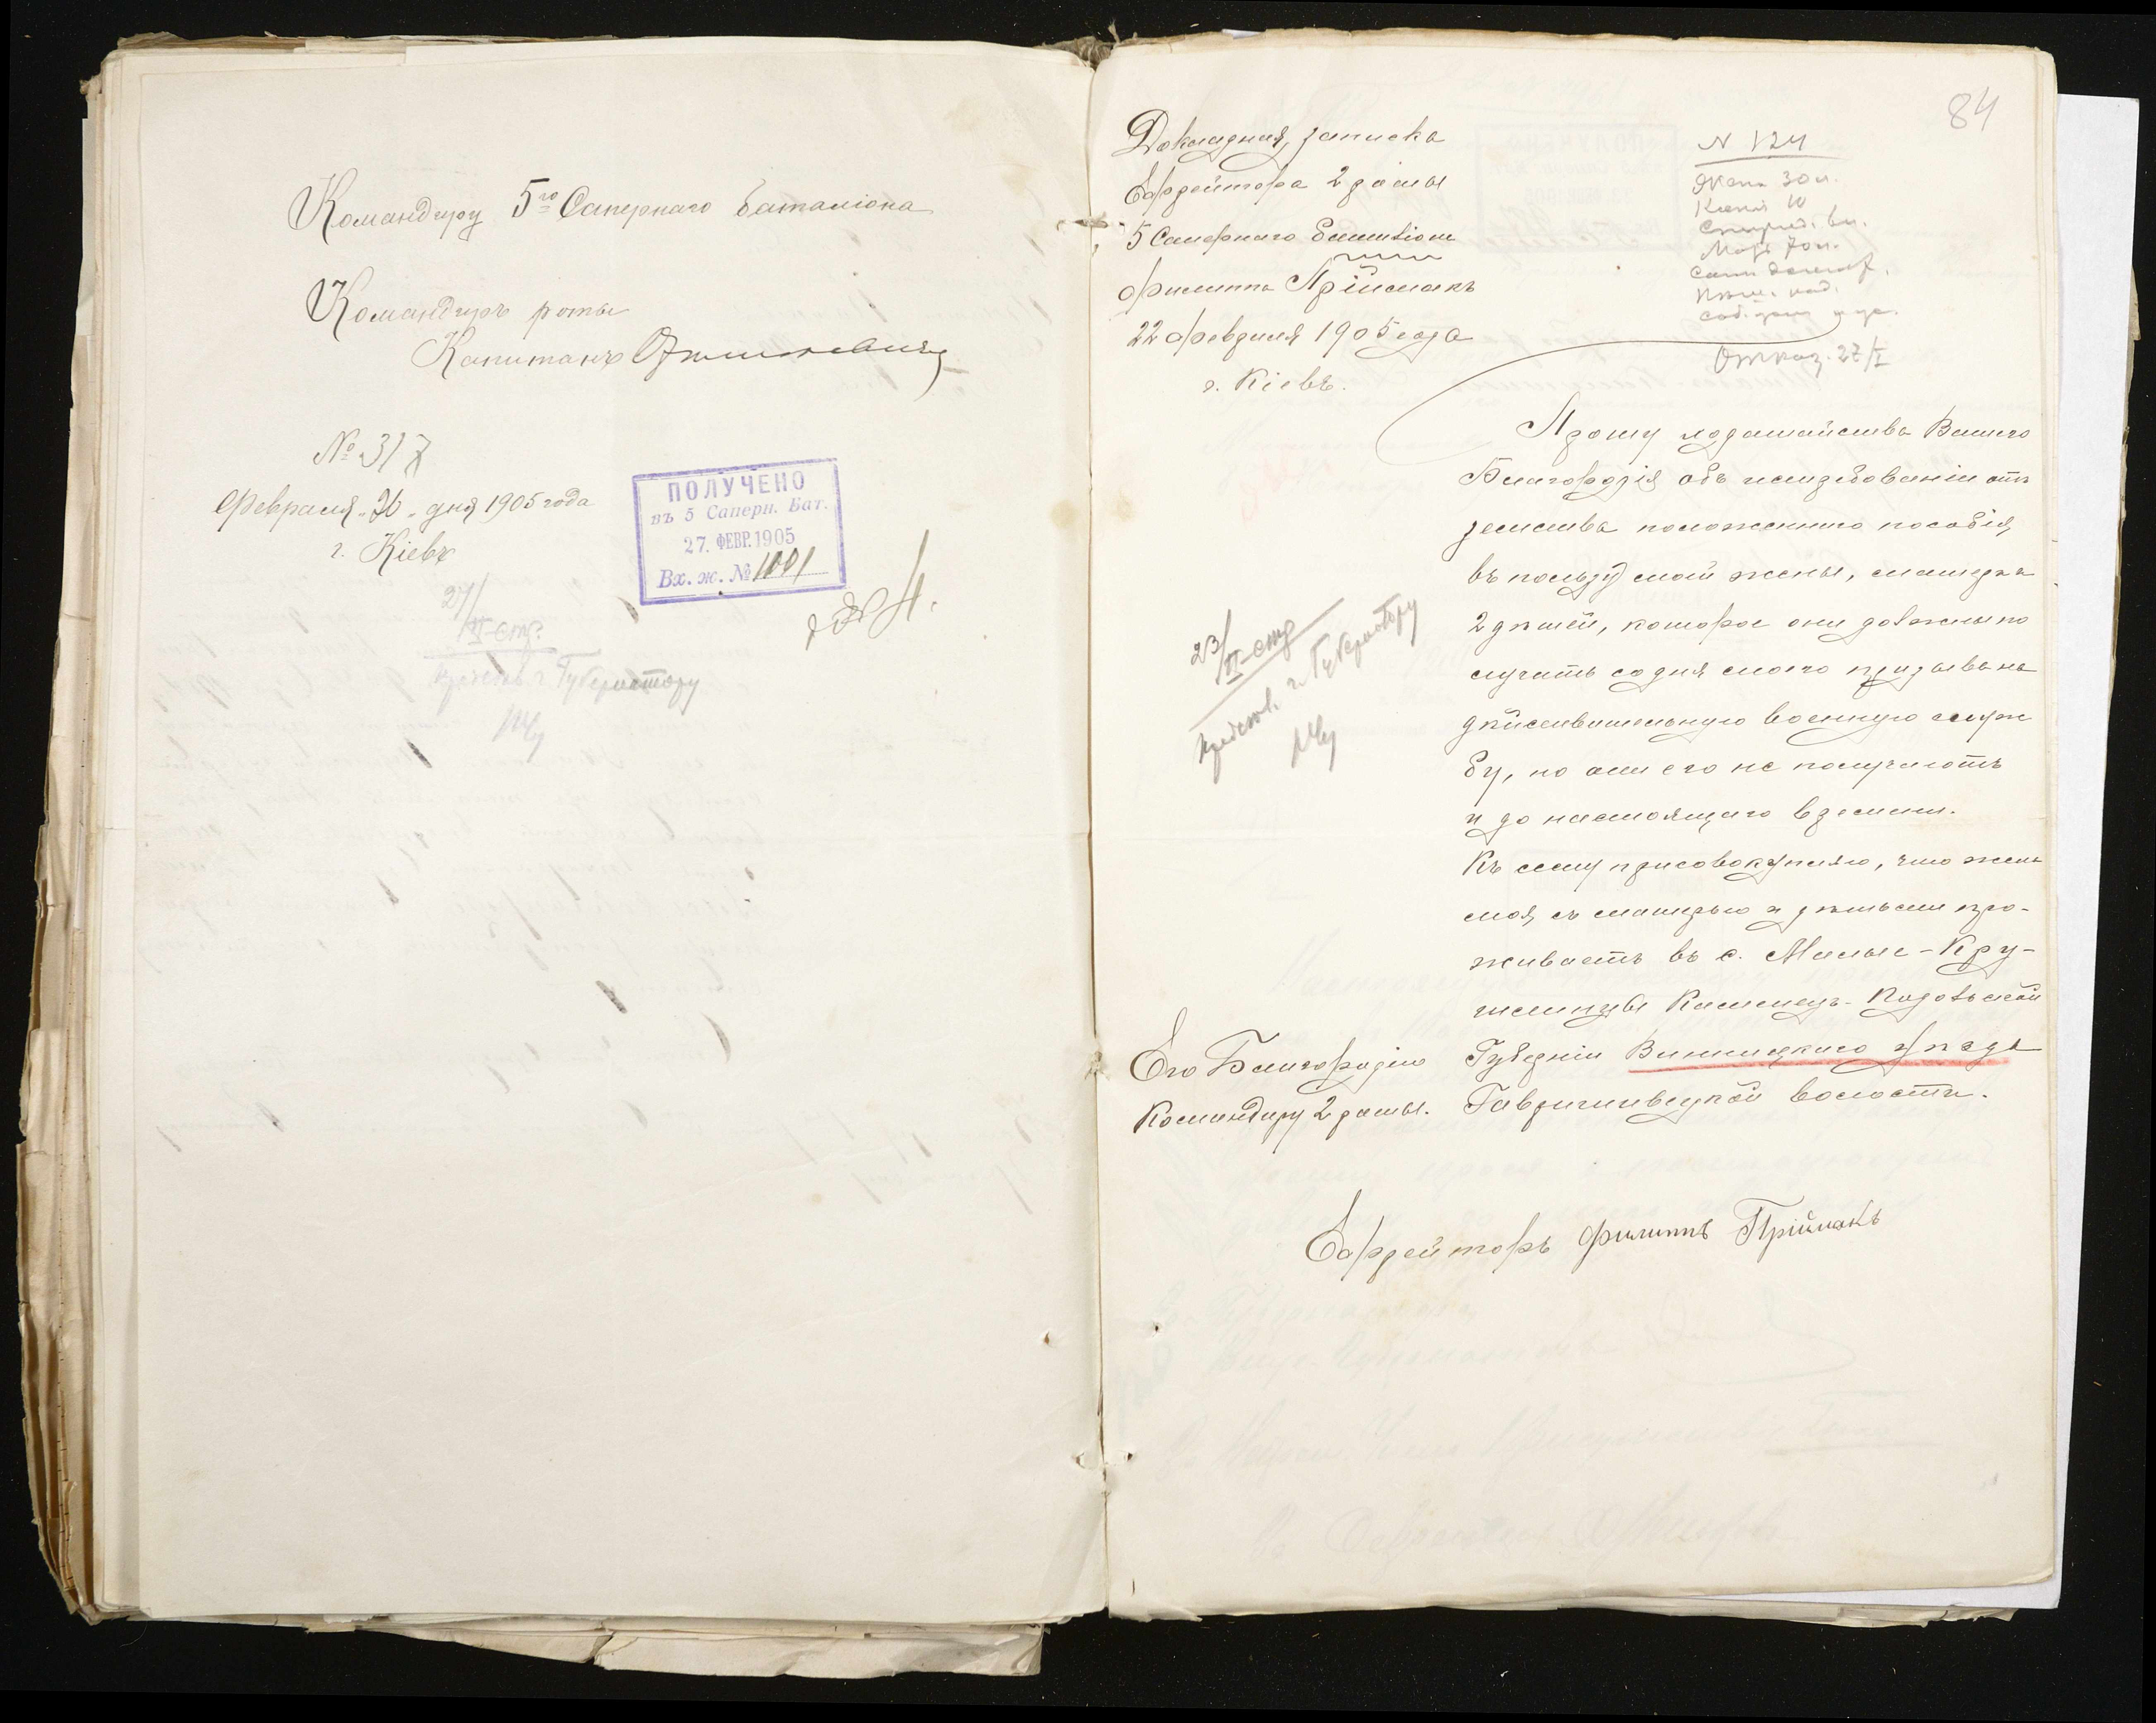 Командиру 5го Сапернаго баталіона
Командиръ роты
Капитанъ
№ 317
Февраля 26 дня 1905 года
г. Кіевъ
ПОЛУЧЕНО
въ 5 Саперн. Бат.
27. ФЕВР. 1905
Вх. ж. № 1001
27/II
Губернатору
84
Докладная записка
Ефрейтора 2 роты
5 Сапернаго баталіона
Филиппа Приймакъ
22 февраля 1905 года
г. Кіевъ.
N 124
Жена 30 л.
Отказ. 27/I
Прошу ходатайства Вашего
Благородія объ истребованіи отъ
земства положеннаго пособія,
въ пользу моей жены, матери и
2 дѣтей, которое они должны по
лучать со дня моего призыва на
дѣйствительную военную служ
бу, но они его не получаютъ
и до настоящаго времени.
Къ сему присовокупляю, что жена
моя, съ матерью и дѣтьми про-
живаетъ въ с. Малые-Кру-
шлинцы Каменецъ-Подольской
Губерніи Винницкаго уѣзда
Гавришивецкой волости.
23/II
представ. г. Губернатору
Его Благородію
Командиру 2 роты.
Ефрейторъ Филиппъ Пріймакъ